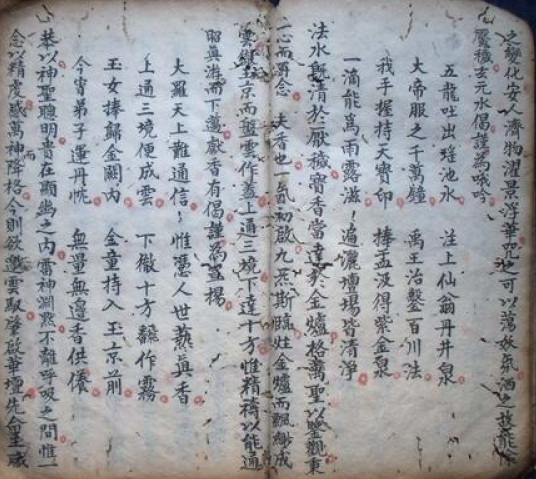 之變化安人濟物濯景浮華咒之可以蕩妖氛洒之故能除
魘穢玄元水偈謹為哦吟
五龍吐出瑤池水 注上仙翁丹井泉
大帝服之千萬鐘 禹王治鑿百川法
我手握持天寶印 捧盂汲得紫金泉
一滴能為雨露滋 遍灑壇場皆清淨
法水既清於厭穢寶香當達於金爐格萬聖以鑒觀秉
一心而爵念 夫香也一氣初啟九炁斯臨炷金爐而飄緲成
雲繞玉京而盤雲作蓋上通三境下達十方惟精禱以能通
昭真遊而下邁獻香有偈謹為宣揚
大羅天上難通信 惟憑人世爇真香
上通三境便成雲 下徹十方翻作霧
玉女捧歸金闕內 金童持入玉京前
今宵弟子運丹忱 無量無邊香供養
恭以神聖聰明貴在顯幽之內雷神淵默不離呼吸之間惟一
念以精虔感萬神降格今則欲邀雲馭肇啟華壇先命五威